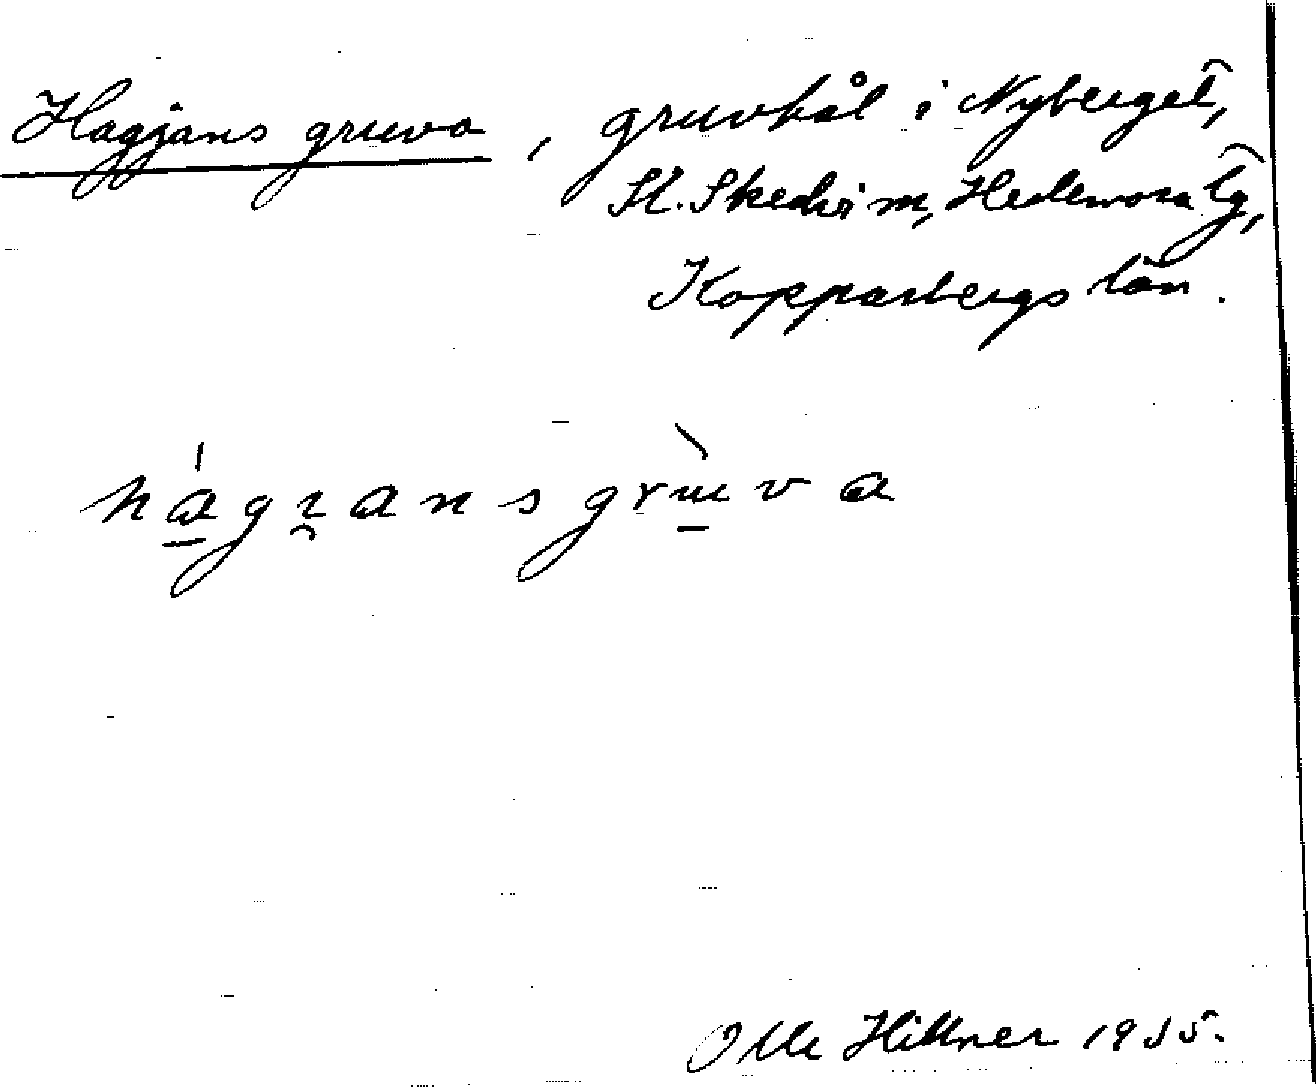 Hagjans gruva, gruvhål i Nyberget,
St. Skedvi sn, Hedemora tg,
Kopparbergs län.
hágɪ̯ansgrɯ̀va
Olle Hillner 1935.